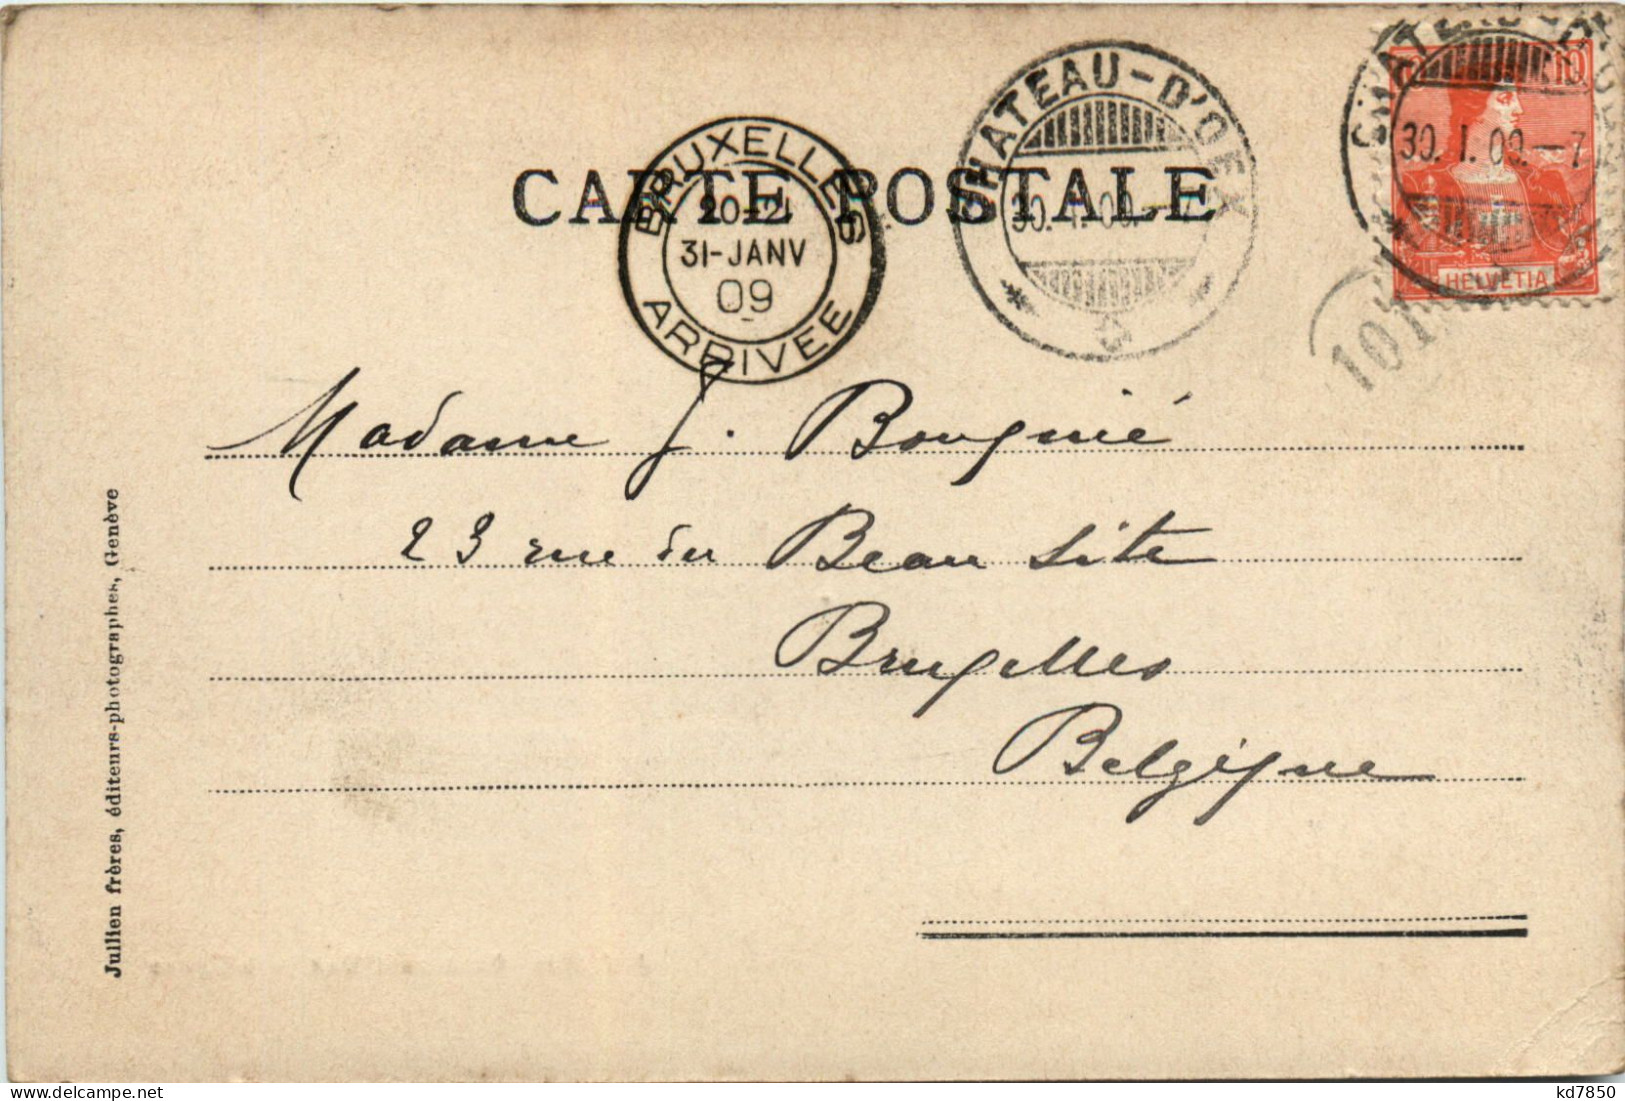 CARTE POSTALE
BRUXELLES
20-21
31-JANV
09
ARRIVEE
CHATEAU-D'OEX
30. I. 09.-7
10
30. I. 09.-7
HELVETIA
101
Madame J. Bougnié
23 rue du Beau Site
Bruxelles
Belgique
Jullien frères, éditeurs-photographes, Genève
delcampe.net
kd7850